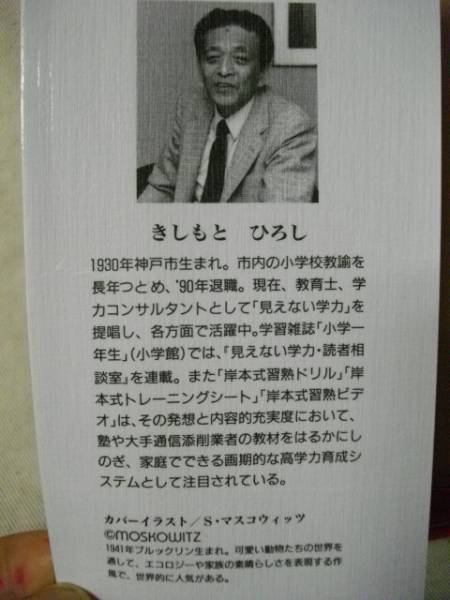 きしもと ひろし
1930年神戸市生まれ。市内の小学校教諭を
長年つとめ、'90年退職。現在、教育士、学
力コンサルタントとして「見えない学力」を
提唱し、各方面で活躍中。学習雑誌「小学一
年生」(小学館)では、「見えない学力・読者相
談室」を連載。また「岸本式習熟ドリル」「岸
本式トレーニングシート」「岸本式習熟ビデ
オ」は、その発想と内容的充実度において、
塾や大手通信添削業者の教材をはるかにし
のぎ、家庭でできる画期的な高学力育成シ
ステムとして注目されている。
カバーイラスト/S・マスコウィッツ
©MOSKOWITZ
1941年ブルックリン生まれ。可愛い動物たちの世界を
通して、エコロジーや家族の素晴らしさを表現する作
風で、世界的に人気がある。